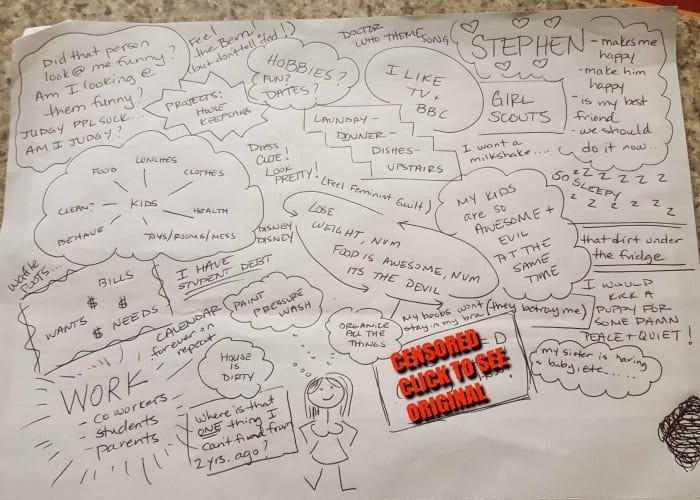 Did that person
look @ me funny?
Am I looking @
them funny?
JUDGY PPL SUCK...
AM I JUDGY?
Feel
the Bern!
(but don't tell dad!)
PROJECTS:
HOUSE
HOBBIES?
FUN?
DATES?
DOCTOR
WHO THEME
SONG
I LIKE
TV +
BBC
STEPHEN
- makes me
happy
- make him
happy
- is my best
friend
- we should
do it now...
GIRL
SCOUTS
LAUNDRY -
DINNER -
DISHES -
UPSTAIRS
I want a
milkshake....
SO
SLEEPY
z z z z z z
z z z z z z
LUNCHES
FOOD
CLOTHES
CLEAN?
KIDS
HEALTH
BEHAVE
TOYS/ROOMS/MESS
DRESS
CUTE!
LOOK
PRETTY!
(Feel Feminist Guilt)
DISNEY
DISNEY
LOSE
WEIGHT, NVM
FOOD IS AWESOME, NVM
ITS THE DEVIL
MY KIDS
are so
AWESOME +
EVIL
AT THE
SAME
TIME
that dirt under
the fridge
Waffle
BILLS
$ $
WANTS $ NEEDS
I HAVE
STUDENT DEBT
CALENDAR
forever on
repeat
PAINT
PRESSURE
WASH
ORGANIZE
ALL THE
THINGS
My boobs wont (they betray me)
stay in my bra
I WOULD
KICK A
PUPPY FOR
SOME DAMN
PEACE + QUIET!
my sister is having
a baby, etc.....
CENSORED
CLICK TO SEE
ORIGINAL
D
HOUSE
IS
DIRTY
WORK
- coworkers
- students
- parents
Where is that
ONE thing I
cant find from
2 yrs. ago?